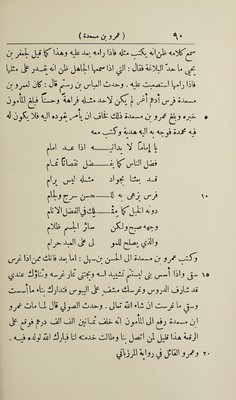 ٩٠ (عمرو بن مسعدة)
سمع كلامه ظن انه يكتب مثله فاذا رامه بعد عليه وهذا كما قيل لجعفر بن
يحيى ما حد البلاغة فقال: التي اذا سمعها الجاهل ظن انه يقدر على مثلها
فاذا رامها استصعبت عليه. وحدث العباس بن رستم قال: كان لعمرو بن
مسعدة فرس أدهم أغر لم يكن لأحد مثله فراهة وحسنا فبلغ المأمون
٥ خبره وبلغ عمرو بن مسعدة ذلك فخاف ان يأمر بقوده اليه فلا يكون له
فيه محمدة فوجه به اليه هدية وكتب معه
يا إماما لا يدانيه اذا عد امام
فضل الناس كما يفضل نقصانا تمام
قد بعثنا بجواد مثله ليس يرام
١٠ فرس يزهى به للحسن سرج ولجام
دونه الخيل كما مثلك في الفضل الانام
وجهه صبح ولكن سائر الجسم ظلام
والذي يصلح للمولى على العبد حرام
وكتب عمرو بن مسعدة الى الحسن بن سهل: اما بعد فانك ممن اذا غرس
١٥ سقى واذا أسس بنى ليستتم تشييد اسه ويجتني ثمار غرسه وثناؤك عندي
قد شارف الدروس وغرسك مشف على اليبوس فتدارك بناء ما أسست
وسقي ما غرست ان شاء الله تعالى. وحدث الصولي قال لما مات عمرو
ابن مسعدة رفع الى المأمون انه خلف ثمانين الف الف درهم فوقع على
الرقعة هذا قليل لمن اتصل بنا وطالت خدمته لنا فبارك الله لولده فيه.
٢٠ وعمرو القائل في رواية المرزباني